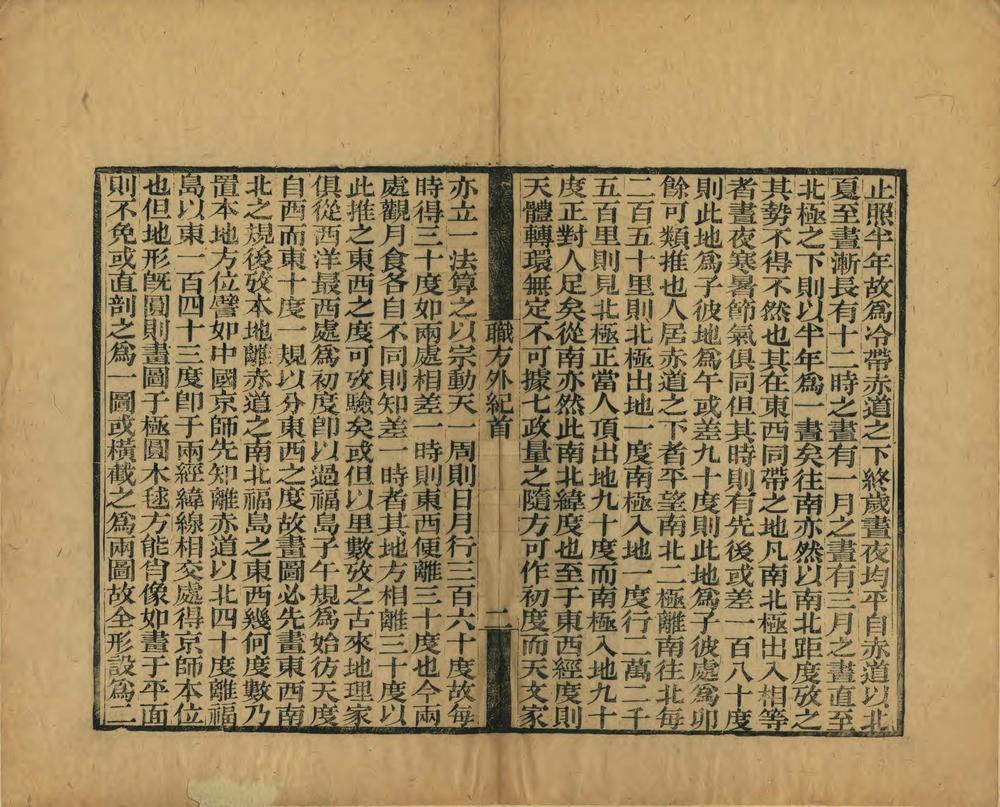 止照半年故爲冷帶赤道之下終歲晝夜均平自赤道以北
夏至晝漸長有十二時之晝有一月之晝有三月之晝直至
北極之下則以半年爲一晝矣往南亦然以南北距度攷之
其勢不得不然也其在東西同帶之地凡南北極出入相等
者晝夜寒暑節氣俱同但其時則有先後或差一百八十度
則此地爲子彼地爲午或差九十度則此地爲子彼處爲卯
餘可類推也人居赤道之下者平望南北二極離南往北每
二百五十里則北極出地一度南極入地一度行二萬二千
五百里則見北極正當人頂出地九十度而南極入地九十
度正對人足矣從南亦然此南北緯度也至于東西經度則
天體轉環無定不可據七政量之隨方可作初度而天文家
職方外紀首
二
亦立一法算之以宗動天一周則日月行三百六十度故每
時得三十度如兩處相差一時則東西便離三十度也今兩
處觀月食各自不同則知差一時者其地方相離三十度以
此推之東西之度可攷驗矣或但以里數攷之古來地理家
俱從西洋最西處爲初度卽以過福島子午規爲始彷天度
自西而東十度一規以分東西之度故畫圖必先畫東西南
北之規後攷本地離赤道之南北福島之東西幾何度數乃
置本地方位譬如中國京師先知離赤道以北四十度離福
島以東一百四十三度卽于兩經緯線相交處得京師本位
也但地形旣圓則畫圖于極圓木毬方能肖像如畫于平面
則不免或直剖之爲一圖或橫截之爲兩圖故全形設爲二